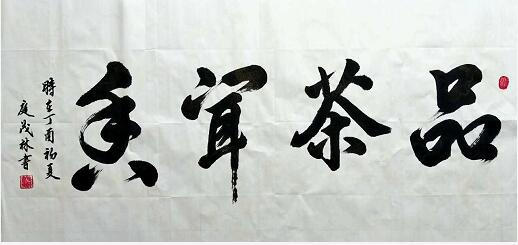 品茶茸香
時在丁酉初夏
庭茂林書